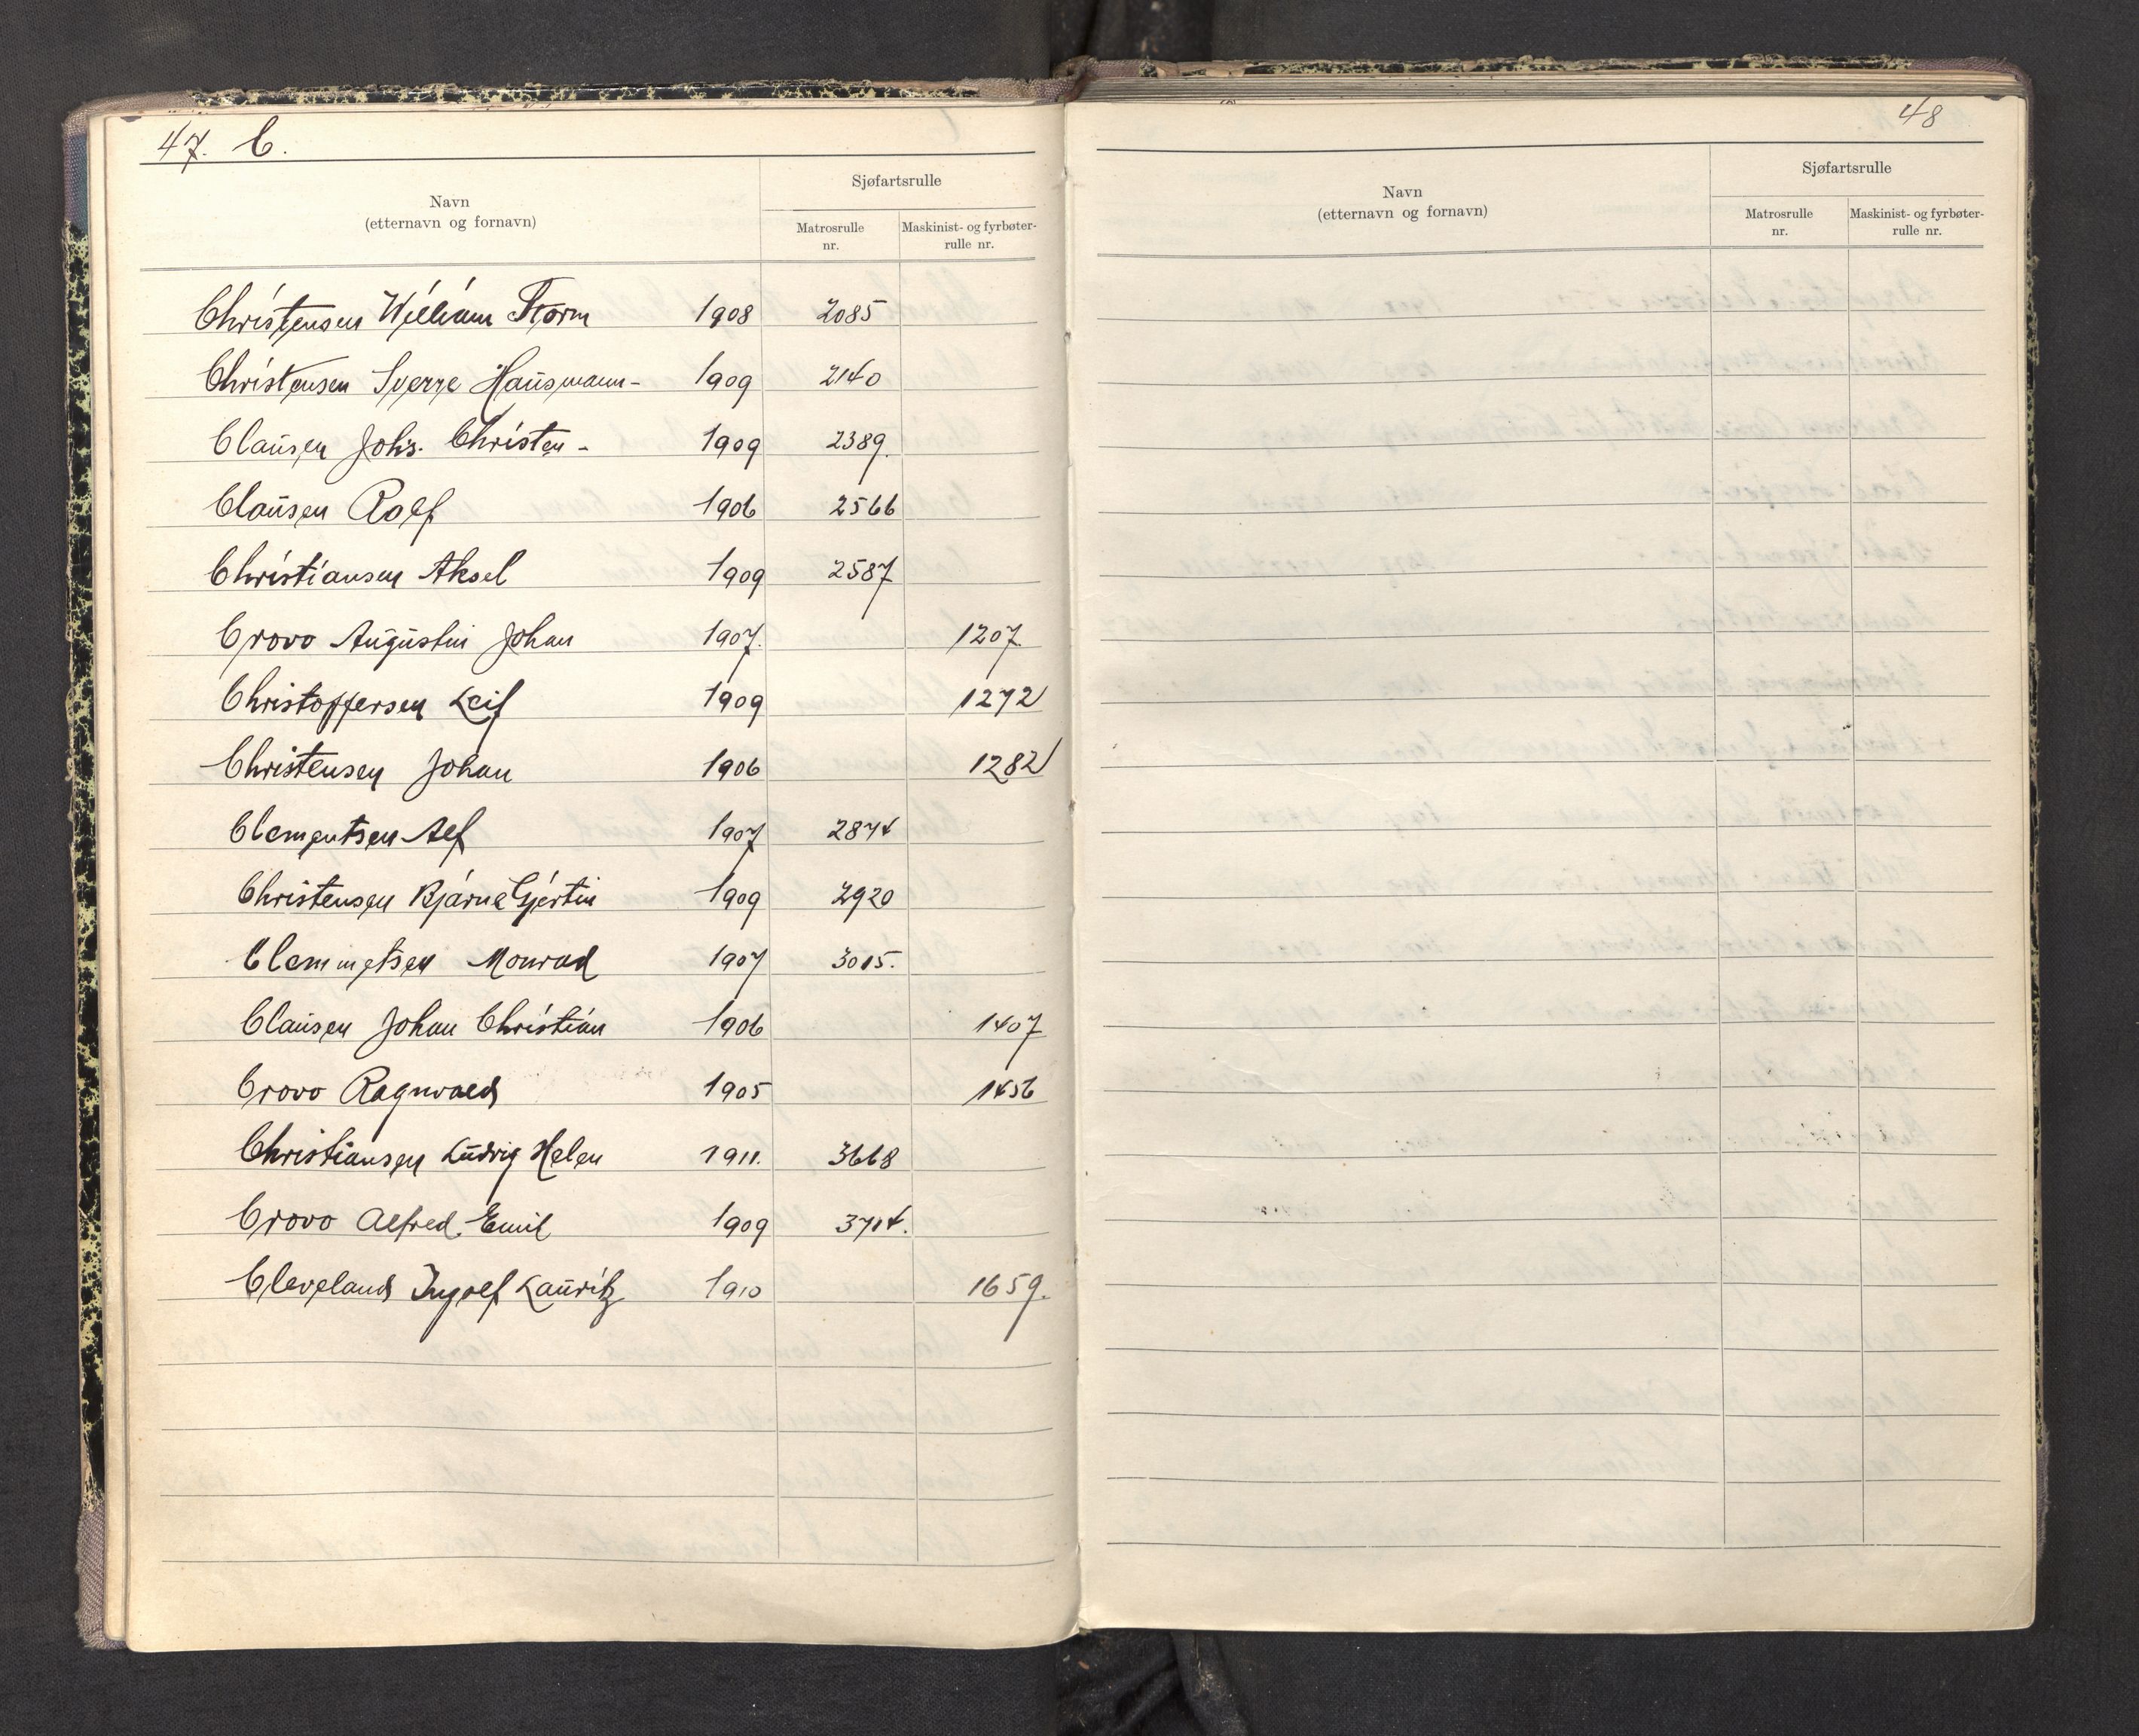 47. C.
Navn
(etternavn og fornavn)
Sjøfartsrulle
Matrosrulle
nr.
Maskinist- og fyrbøter-
rulle nr.
Christensen William Storm 1908 2085
Christensen Sverre Hausmann - 1909 2140
Clausen Johs. Christen - 1909 2389.
Clausen Rolf 1906 2566
Christiansen Aksel 1909 2587
Crovo Augustin Johan 1907. 1207.
Christoffersen Leif 1909 1272
Christensen Johan 1906 1282
Clementsen Alf 1907 2874
Christensen Bjarne Gjertin 1909 2920
Clemmetsen Monrad 1907 3015.
Clausen Johan Christian 1906 1407
Crovo Ragnvald 1905 1456
Christiansen Ludvig Helen 1911. 3668
Crovo Alfred Emil 1909 3714.
Cleveland Ingolf Lauritz 1910 1659.
48
Navn
(etternavn og fornavn)
Sjøfartsrulle
Matrosrulle
nr.
Maskinist- og fyrbøter-
rulle nr.